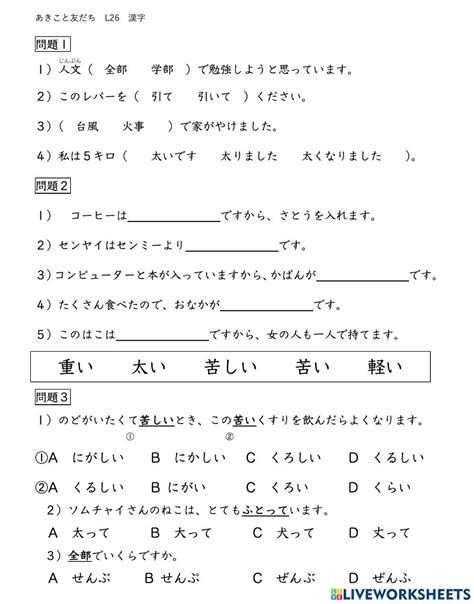 あきこと友だち　L26　漢字
問題１
じんぶん
１）人文（　全部　　学部　）で勉強しようと思っています。
２）このレバーを（　引て　　引いて　）ください。
３）（　台風　　火事　　）で家がやけました。
４）私は５キロ（　　太いです　　太りました　　太くなりました　　）。
問題２
１）　コーヒーは＿＿＿＿＿＿＿ですから、さとうを入れます。
２）センヤイはセンミーより＿＿＿＿＿＿＿です。
３）コンピューターと本が入っていますから、かばんが＿＿＿＿＿＿＿です。
４）たくさん食べたので、おなかが＿＿＿＿＿＿＿です。
５）このはこは＿＿＿＿＿＿＿ですから、女の人も一人で持てます。
重い　　太い　　苦しい　　苦い　　軽い
問題３
１）のどがいたくて苦しいとき、この苦いくすりを飲んだらよくなります。
①　②
①A　にがしい　　B　にかしい　　C　くろしい　　D　くるしい
②A　くるしい　　B　にがい　　C　くろい　　D　くらい
２）ソムチャイさんのねこは、とてもふとっています。
A　太って　　B　大って　　C　犬って　　D　丈って
３）全部でいくらですか。
A　せんぶ　　B　せんぷ　　C　ぜんぶ　　D　ぜんふ
LIVEWORKSHEETS